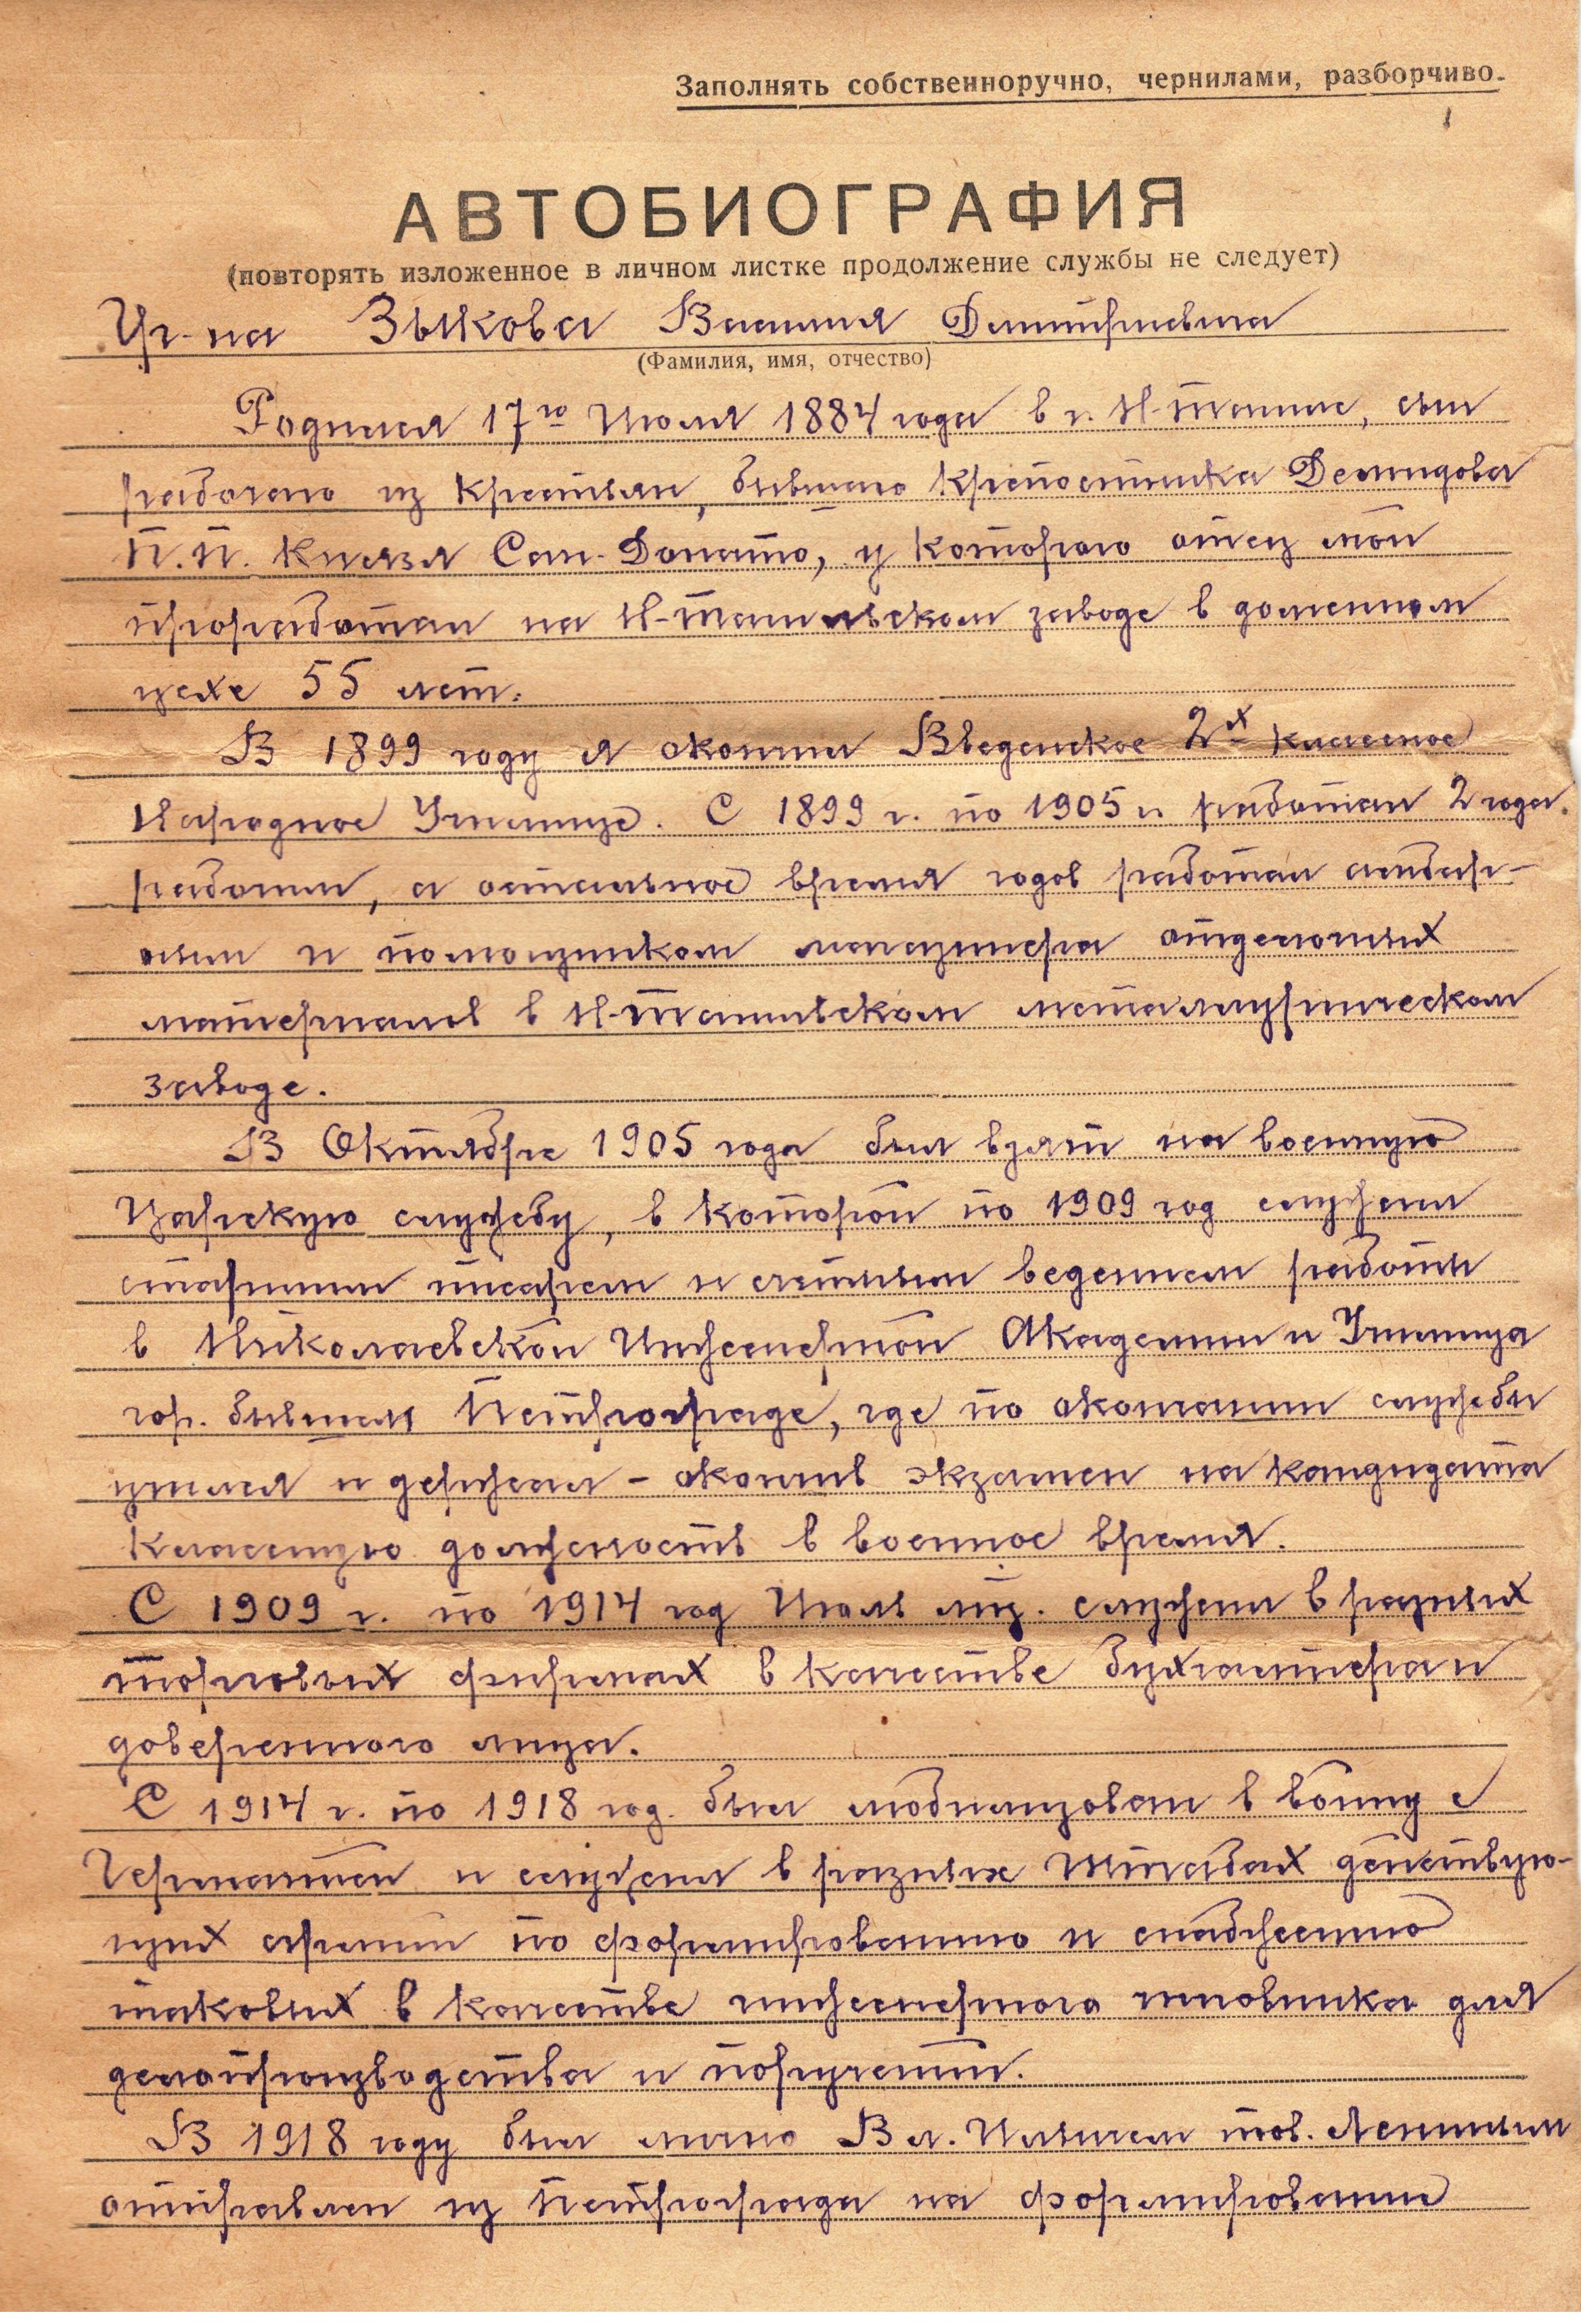 Заполнять собственноручно, чернилами, разборчиво.
АВТОБИОГРАФИЯ
(повторять изложенное в личном листке продолжение службы не следует)
Гр-на Зыкова Василия Дмитриевича
(Фамилия, имя, отчество)
Родился 17го Июля 1884 года в г. Н-Тагиле, сын
рабочего из крестьян, бывшего крепостника Демидова
П.П. Князя Сан-Донато, у которого отец мой
проработал на Н-Тагильском заводе в доменном
цехе 55 лет.
В 1899 году я окончил Введенское 2х классное
Народное Училище. С 1899 г. по 1905 г. работал 2 года
рабочим, а остальное время годов работал амбар-
ным и помощником магазинера отделочных
материалов в Н-Тагильском металлургическом
заводе.
В Октябре 1905 года был взят на военную
Царскую службу, в которой по 1909 год служил
старшим писарем и счетным ведением работы
в Николаевской Инженерной Академии и Училища
гор. бывшем Петрограде, где по окончании службы
учился и держал - окончив экзамен на кандидата
классную должность в военное время.
С 1909 г. по 1914 год Июль м-ц. служил в разных
торговых фирмах в качестве бухгалтера и
доверенного лица.
С 1914 г. по 1918 год. был мобилизован в войну с
Германией и служил в разных Штабах действую-
щих армий по формированию и снабжению
таковых в качестве инженерного чиновника для
делопроизводства и поручений.
В 1918 году был лично Вл. Ильичем тов. Лениным
отправлен из Петрограда на формирование